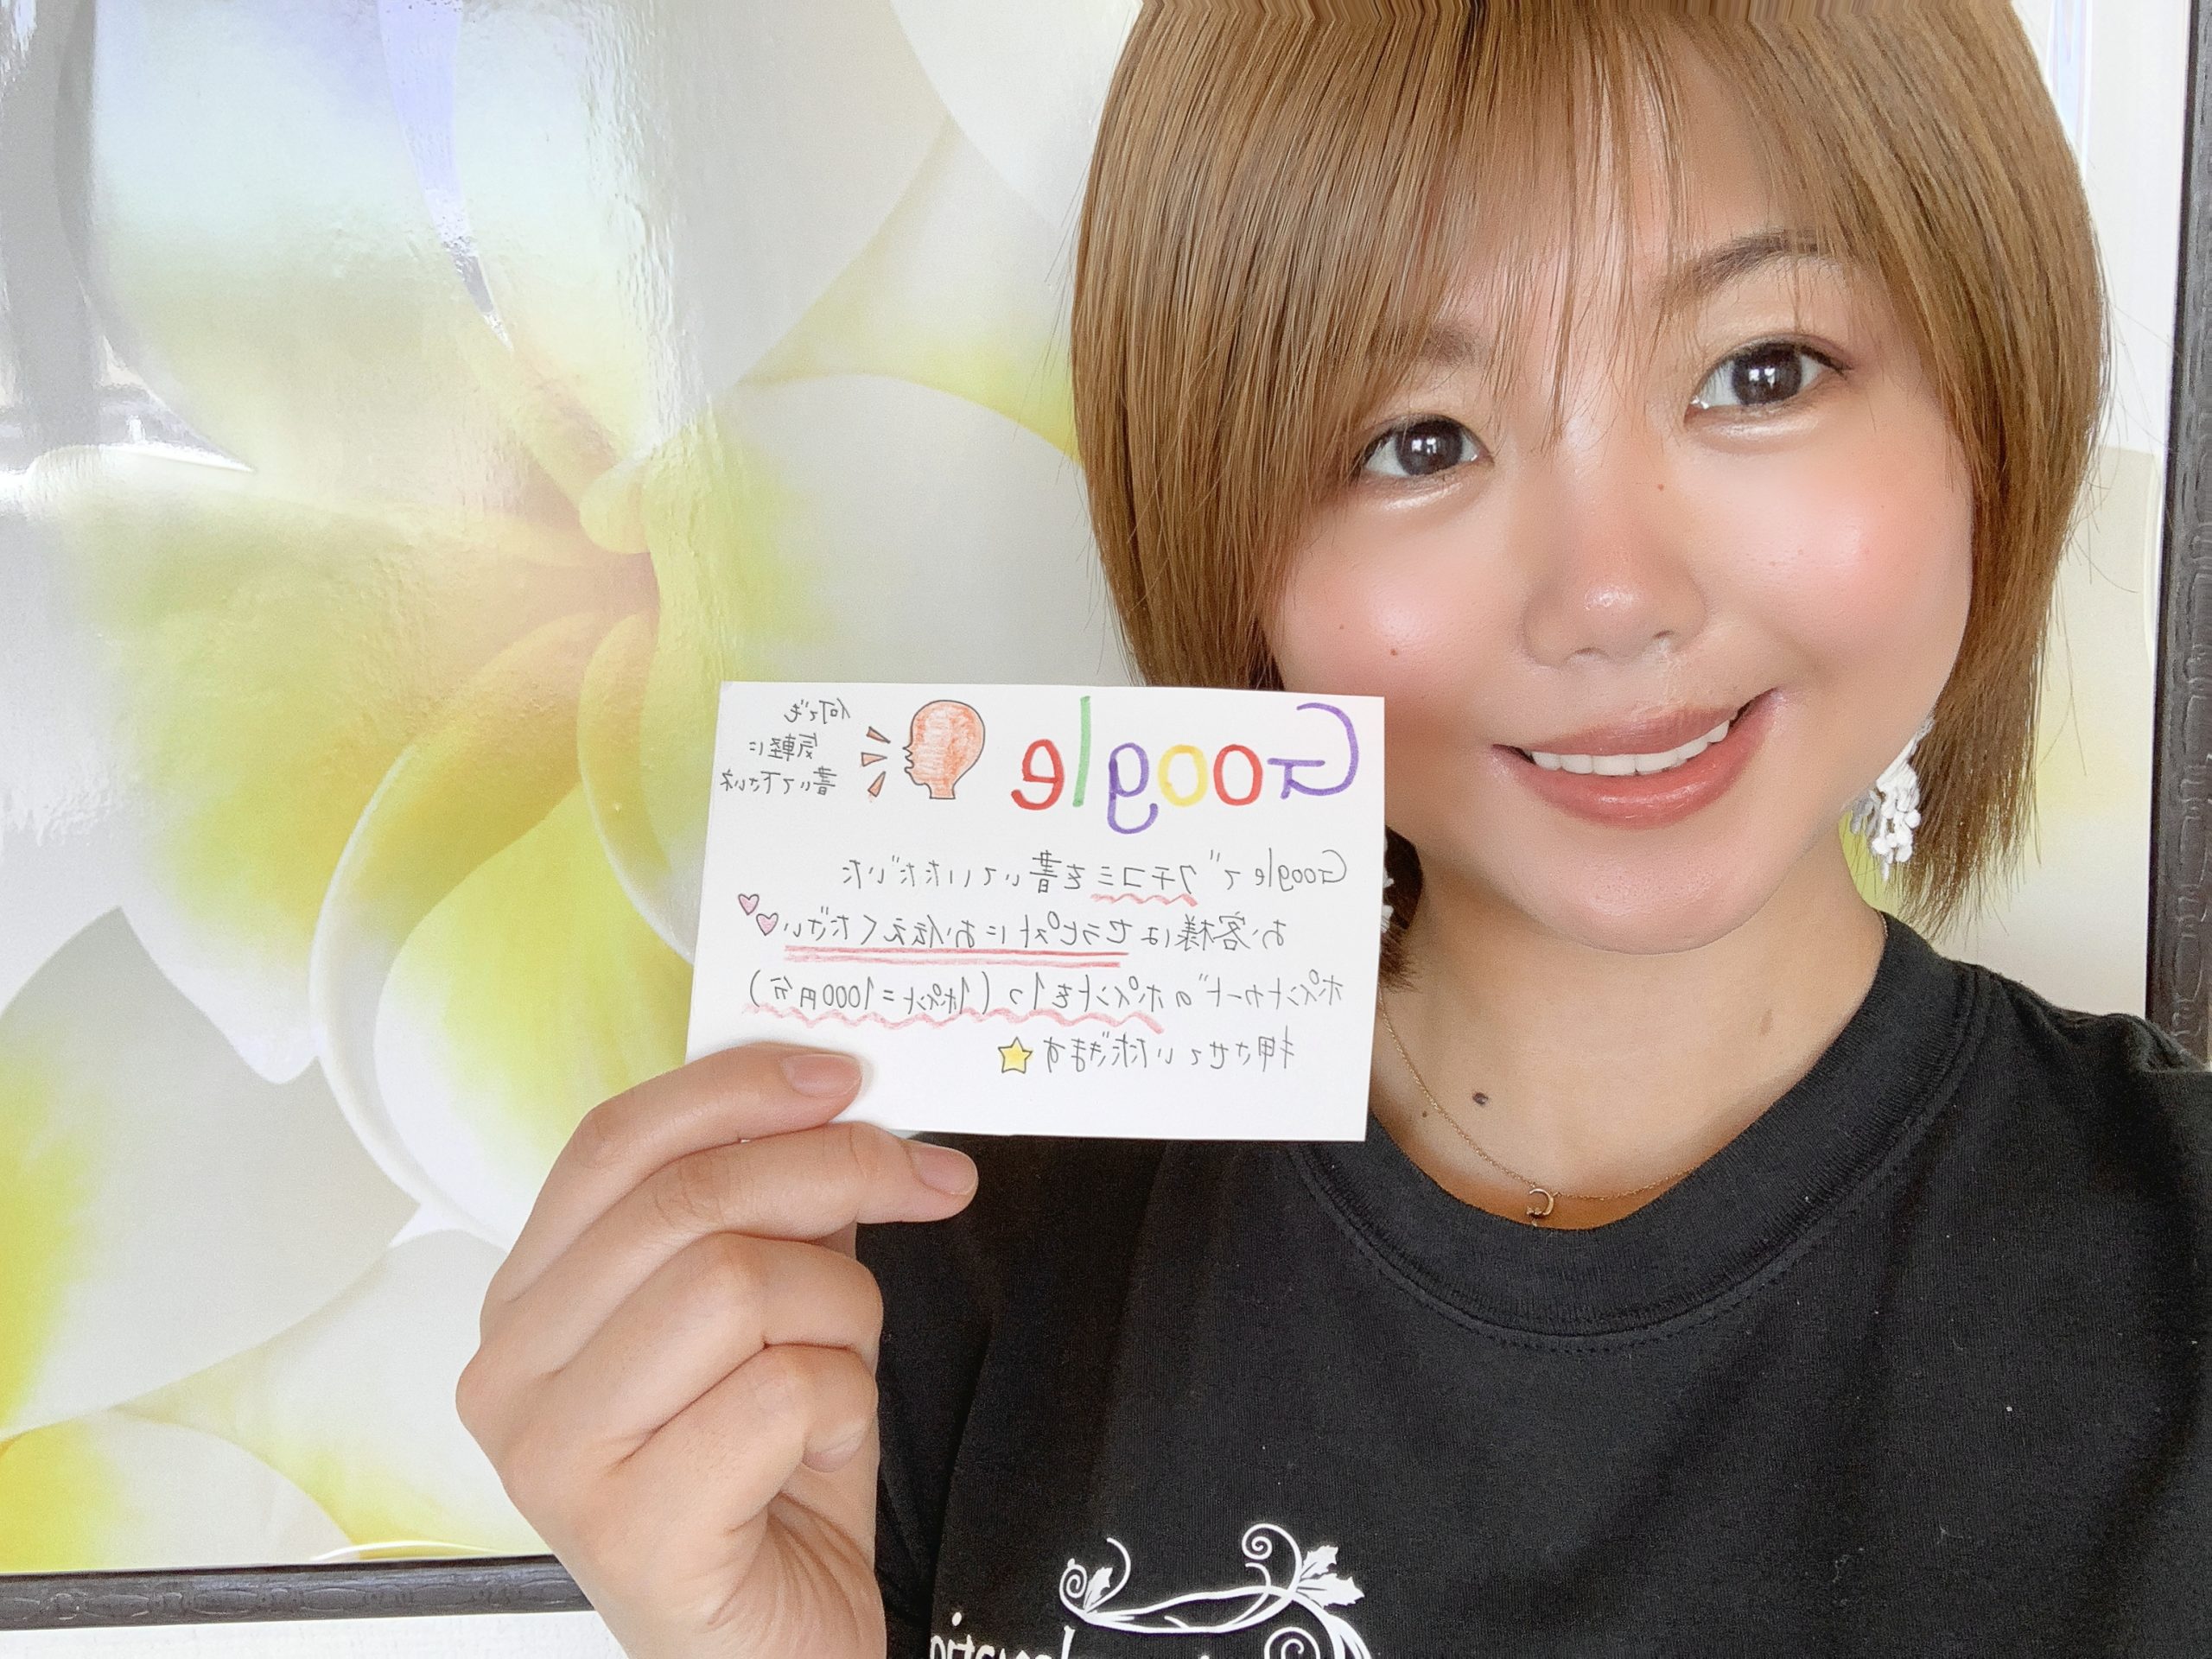 Google
何でも
気軽に
書いて下さいネ
Googleで クチコミを書いていただいた
お客様はセラピストにお伝えください
ポイントカードのポイントを1つ (1ポイント=1000円分)
押させていただきます